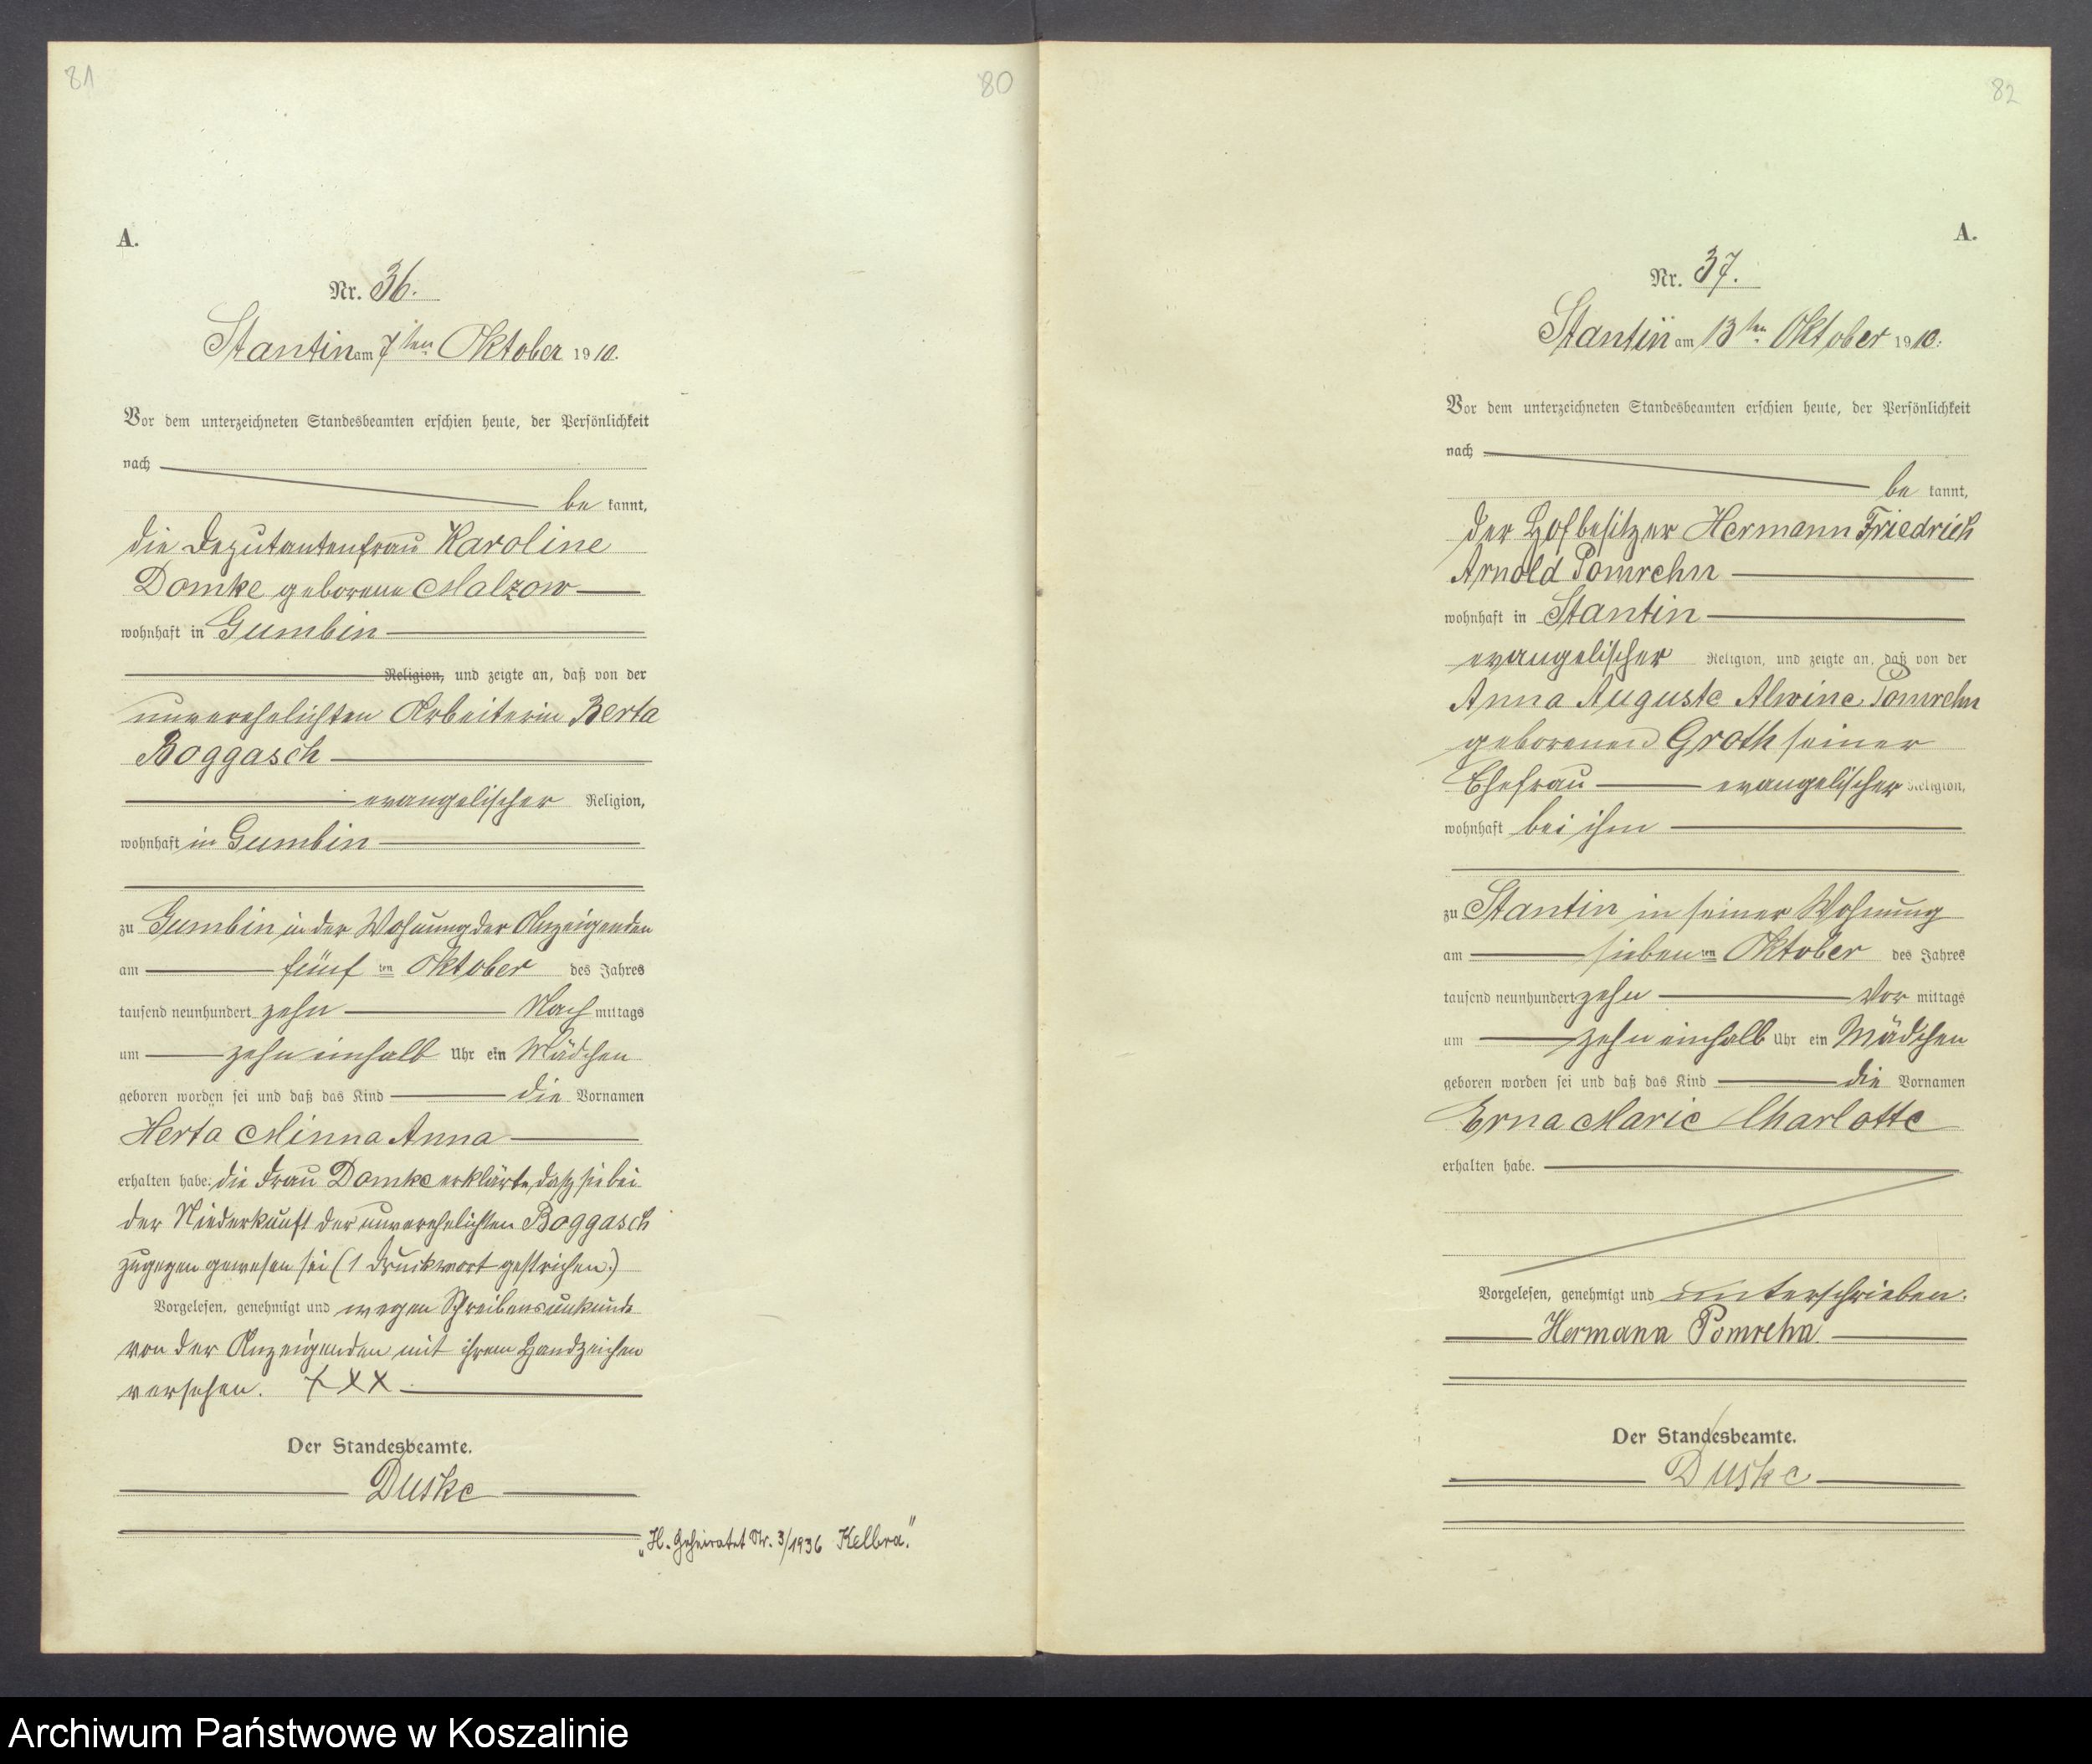 81
80
A.
Nr. 36.
Stantin am 7ten Oktober 1910.
Vor dem unterzeichneten Standesbeamten erschien heute, der Persönlichkeit
nach
be kannt,
die Deputantenfrau Karoline
Domke geborene Malzow
wohnhaft in Gumbin
Religion, und zeigte an, daß von der
unverehelichten Arbeiterin Berta
Boggasch
evangelischer Religion,
wohnhaft in Gumbin
zu Gumbin in der Wohnung der Anzeigenden
am fünf ten Oktober des Jahres
tausend neunhundert zehn Nach mittags
um zehn einhalb Uhr ein Mädchen
geboren worden sei und daß das Kind die Vornamen
Herta Minna Anna
erhalten habe. die Frau Domke erklärte, daß sie bei
der Niederkunft der unverehelichten Boggasch
zugegen gewesen sei (1 Druckwort gestrichen.)
Vorgelesen, genehmigt und wegen Schreibensunkunde
von der Anzeigenden mit ihrem Handzeichen
versehen. XXX
Der Standesbeamte.
Duske
„H. geheiratet Nr. 3/1936 Kelbra."
82
A.
Nr. 37.
Stantin am 13ten Oktober 1910.
Vor dem unterzeichneten Standesbeamten erschien heute, der Persönlichkeit
nach
be kannt,
der Hofbesitzer Hermann Friedrich
Arnold Pomrehn
wohnhaft in Stantin
evangelischer Religion, und zeigte an, daß von der
Anna Auguste Alwine Pomrehn
geborenen Groth seiner
Ehefrau evangelischer Religion,
wohnhaft bei ihm
zu Stantin in seiner Wohnung
am sieben ten Oktober des Jahres
tausend neunhundert zehn Vor mittags
um zehn einhalb Uhr ein Mädchen
geboren worden sei und daß das Kind die Vornamen
Erna Marie Charlotte
erhalten habe.
Vorgelesen, genehmigt und unterschrieben.
Hermann Pomrehn
Der Standesbeamte.
Duske
Archiwum Państwowe w Koszalinie